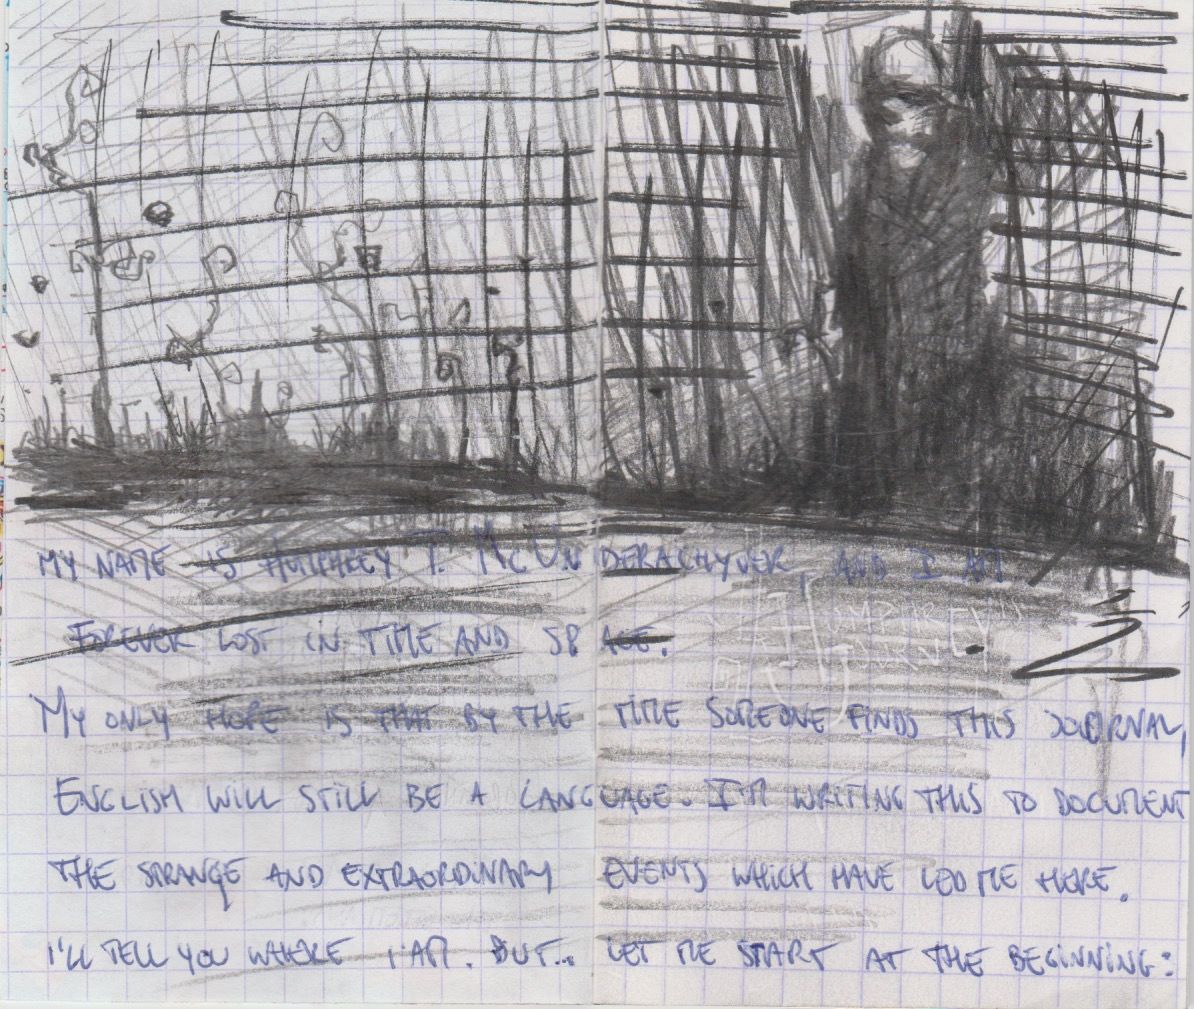 MY NAME IS HUMPHREY T. MCUNDERACHYVER, AND I AM
FOREVER LOST IN TIME AND SPACE.
"HUMPHREY"
JOURNEY
MY ONLY HOPE IS THAT BY THE TIME SOMEONE FINDS THIS JOURNAL,
ENGLISH WILL STILL BE A LANGUAGE. I'M WRITING THIS TO DOCUMENT
THE STRANGE AND EXTRAORDINARY EVENTS WHICH HAVE LED ME HERE.
I'LL TELL YOU WHERE I AM. BUT... LET ME START AT THE BEGINNING: